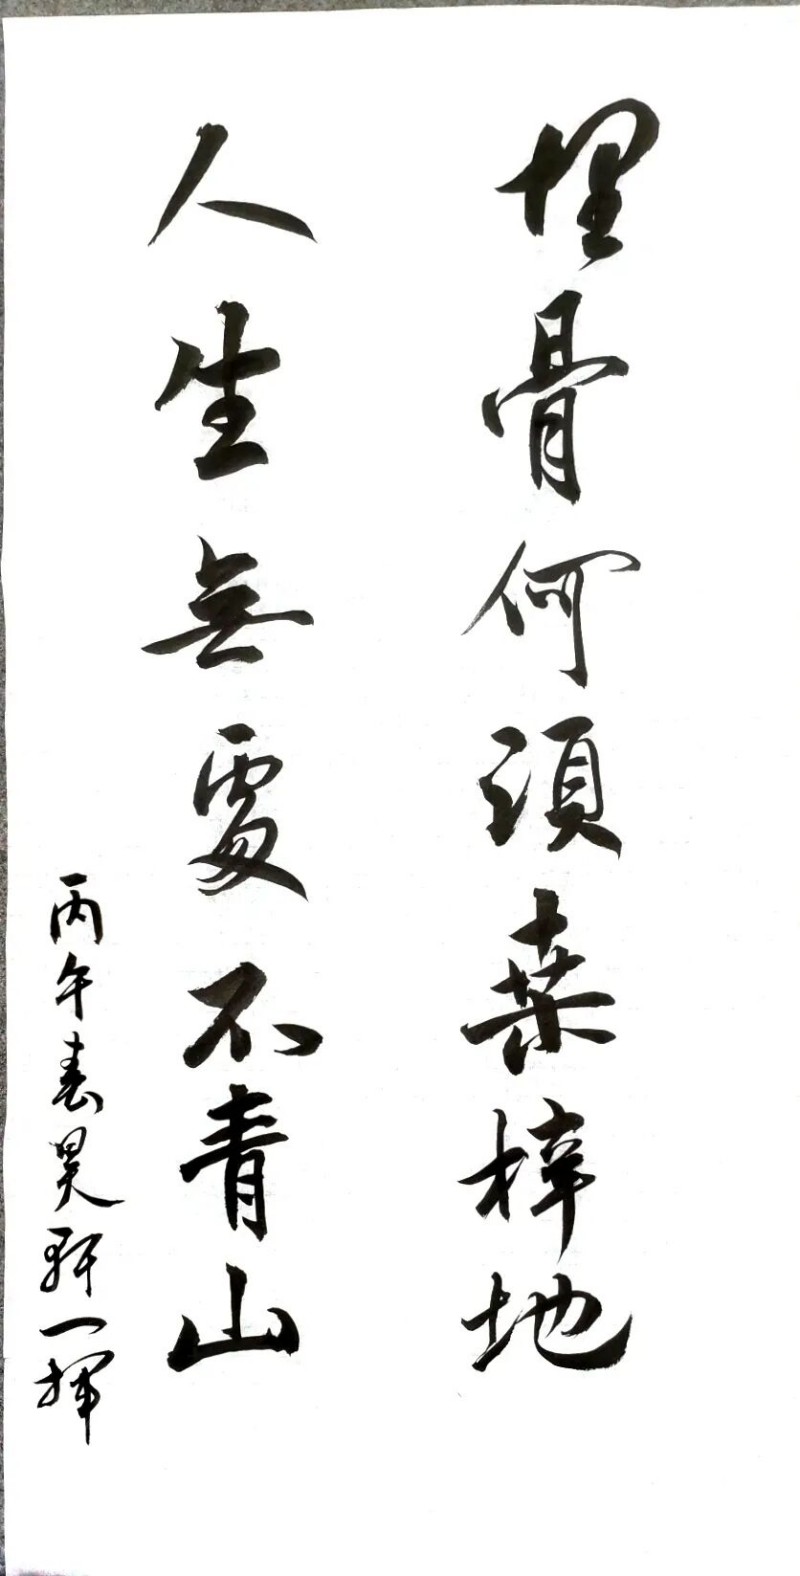 埋骨何須桑梓地
人生無處不青山
丙午春昊軒一揮